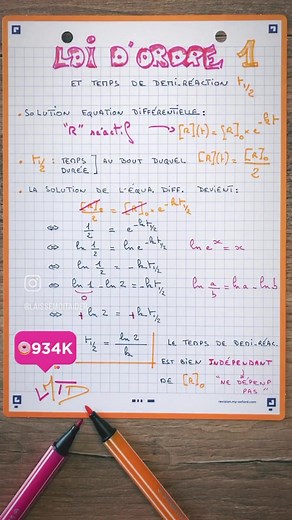 LOI D'ORDRE 1
ET TEMPS DE DEMI-RÉACTION t1/2
• SOLUTION EQUATION DIFFÉRENTIELLE :
"R" réactif → [R](t) = [R]₀ × e^-kt
• t1/2 : TEMPS ] AU BOUT DUQUEL [R](t) = [R]₀/2
DURÉE
• LA SOLUTION DE L'ÉQUA. DIFF. DEVIENT :
[R]₀/2 = [R]₀ × e^-kt1/2
⇔ 1/2 = e^-kt1/2
⇔ ln 1/2 = ln e^-kt1/2 ln e^x = x
⇔ ln 1/2 = -kt1/2
⇔ ln 1 - ln 2 = -kt1/2 ln a/b = ln a - ln b
0
⇔ + ln 2 = + kt1/2
934K
t1/2 = ln 2/k LE TEMPS DE DEMI-RÉAC.
EST BIEN INDÉPENDANT
DE [R]₀ "NE DÉPEND
PAS"